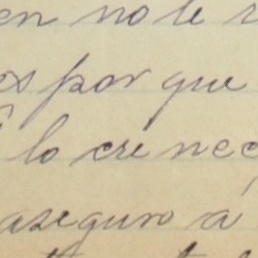 en no le
os por que
lo cre nec
aseguro á